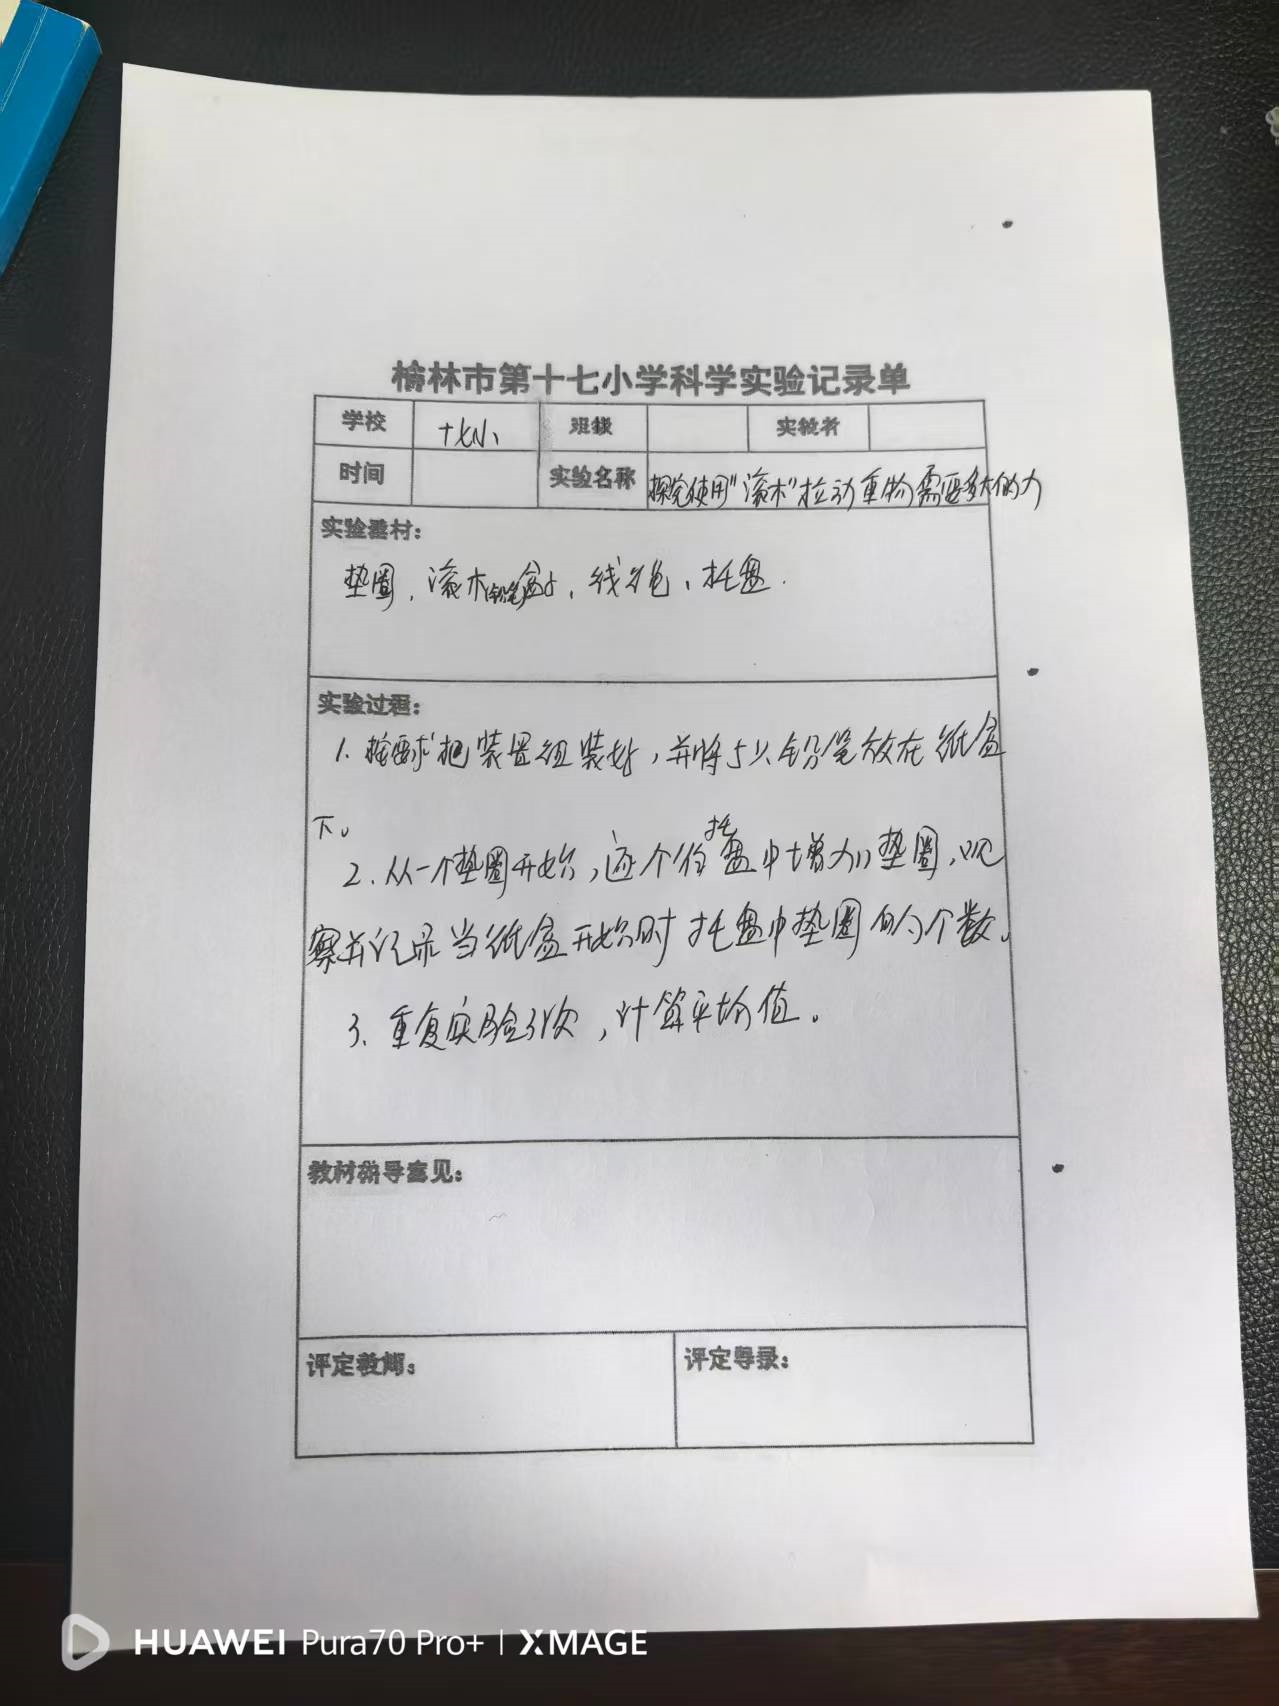 榆林市第十七小学科学实验记录单
学校 十七小 班级 实验者
时间 实验名称 探究使用"滚木"拉动重物需要多大的力
实验器材:
垫圈、滚木(铅笔)、线绳、托盘.
实验过程:
1. 按要求把装置组装好,并将5只铅笔放在纸盒
下。
2. 从一个垫圈开始,逐个往托盘中增加垫圈,观
察并记录当纸盒开始时托盘中垫圈的个数。
3. 重复实验3次,计算平均值。
教材指导意见:
评定教师: 评定等级:
HUAWEI Pura70 Pro+ | XMAGE